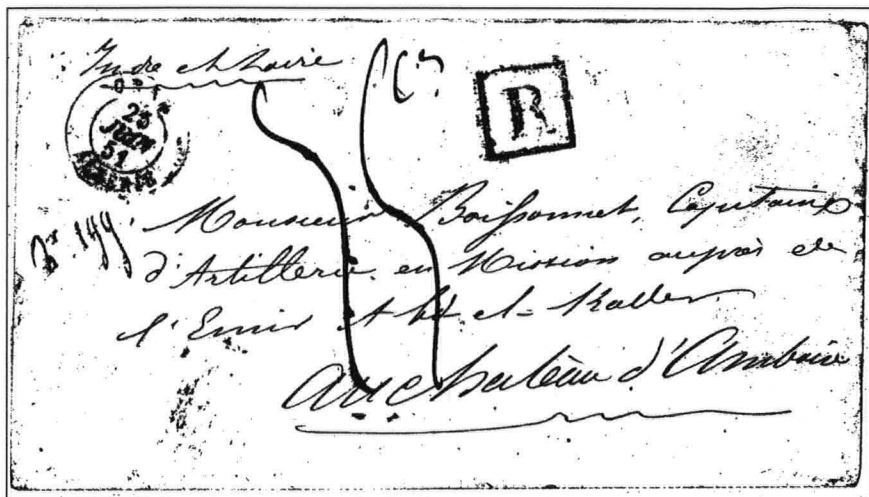 Indre et Loire
R
25
JUIN
51
ALGERIE
Monsieur Boissonnet, Capitaine
d'Artillerie en Mission auprès de
l'Emir Abd-el-Kader
au Château d'Amboise